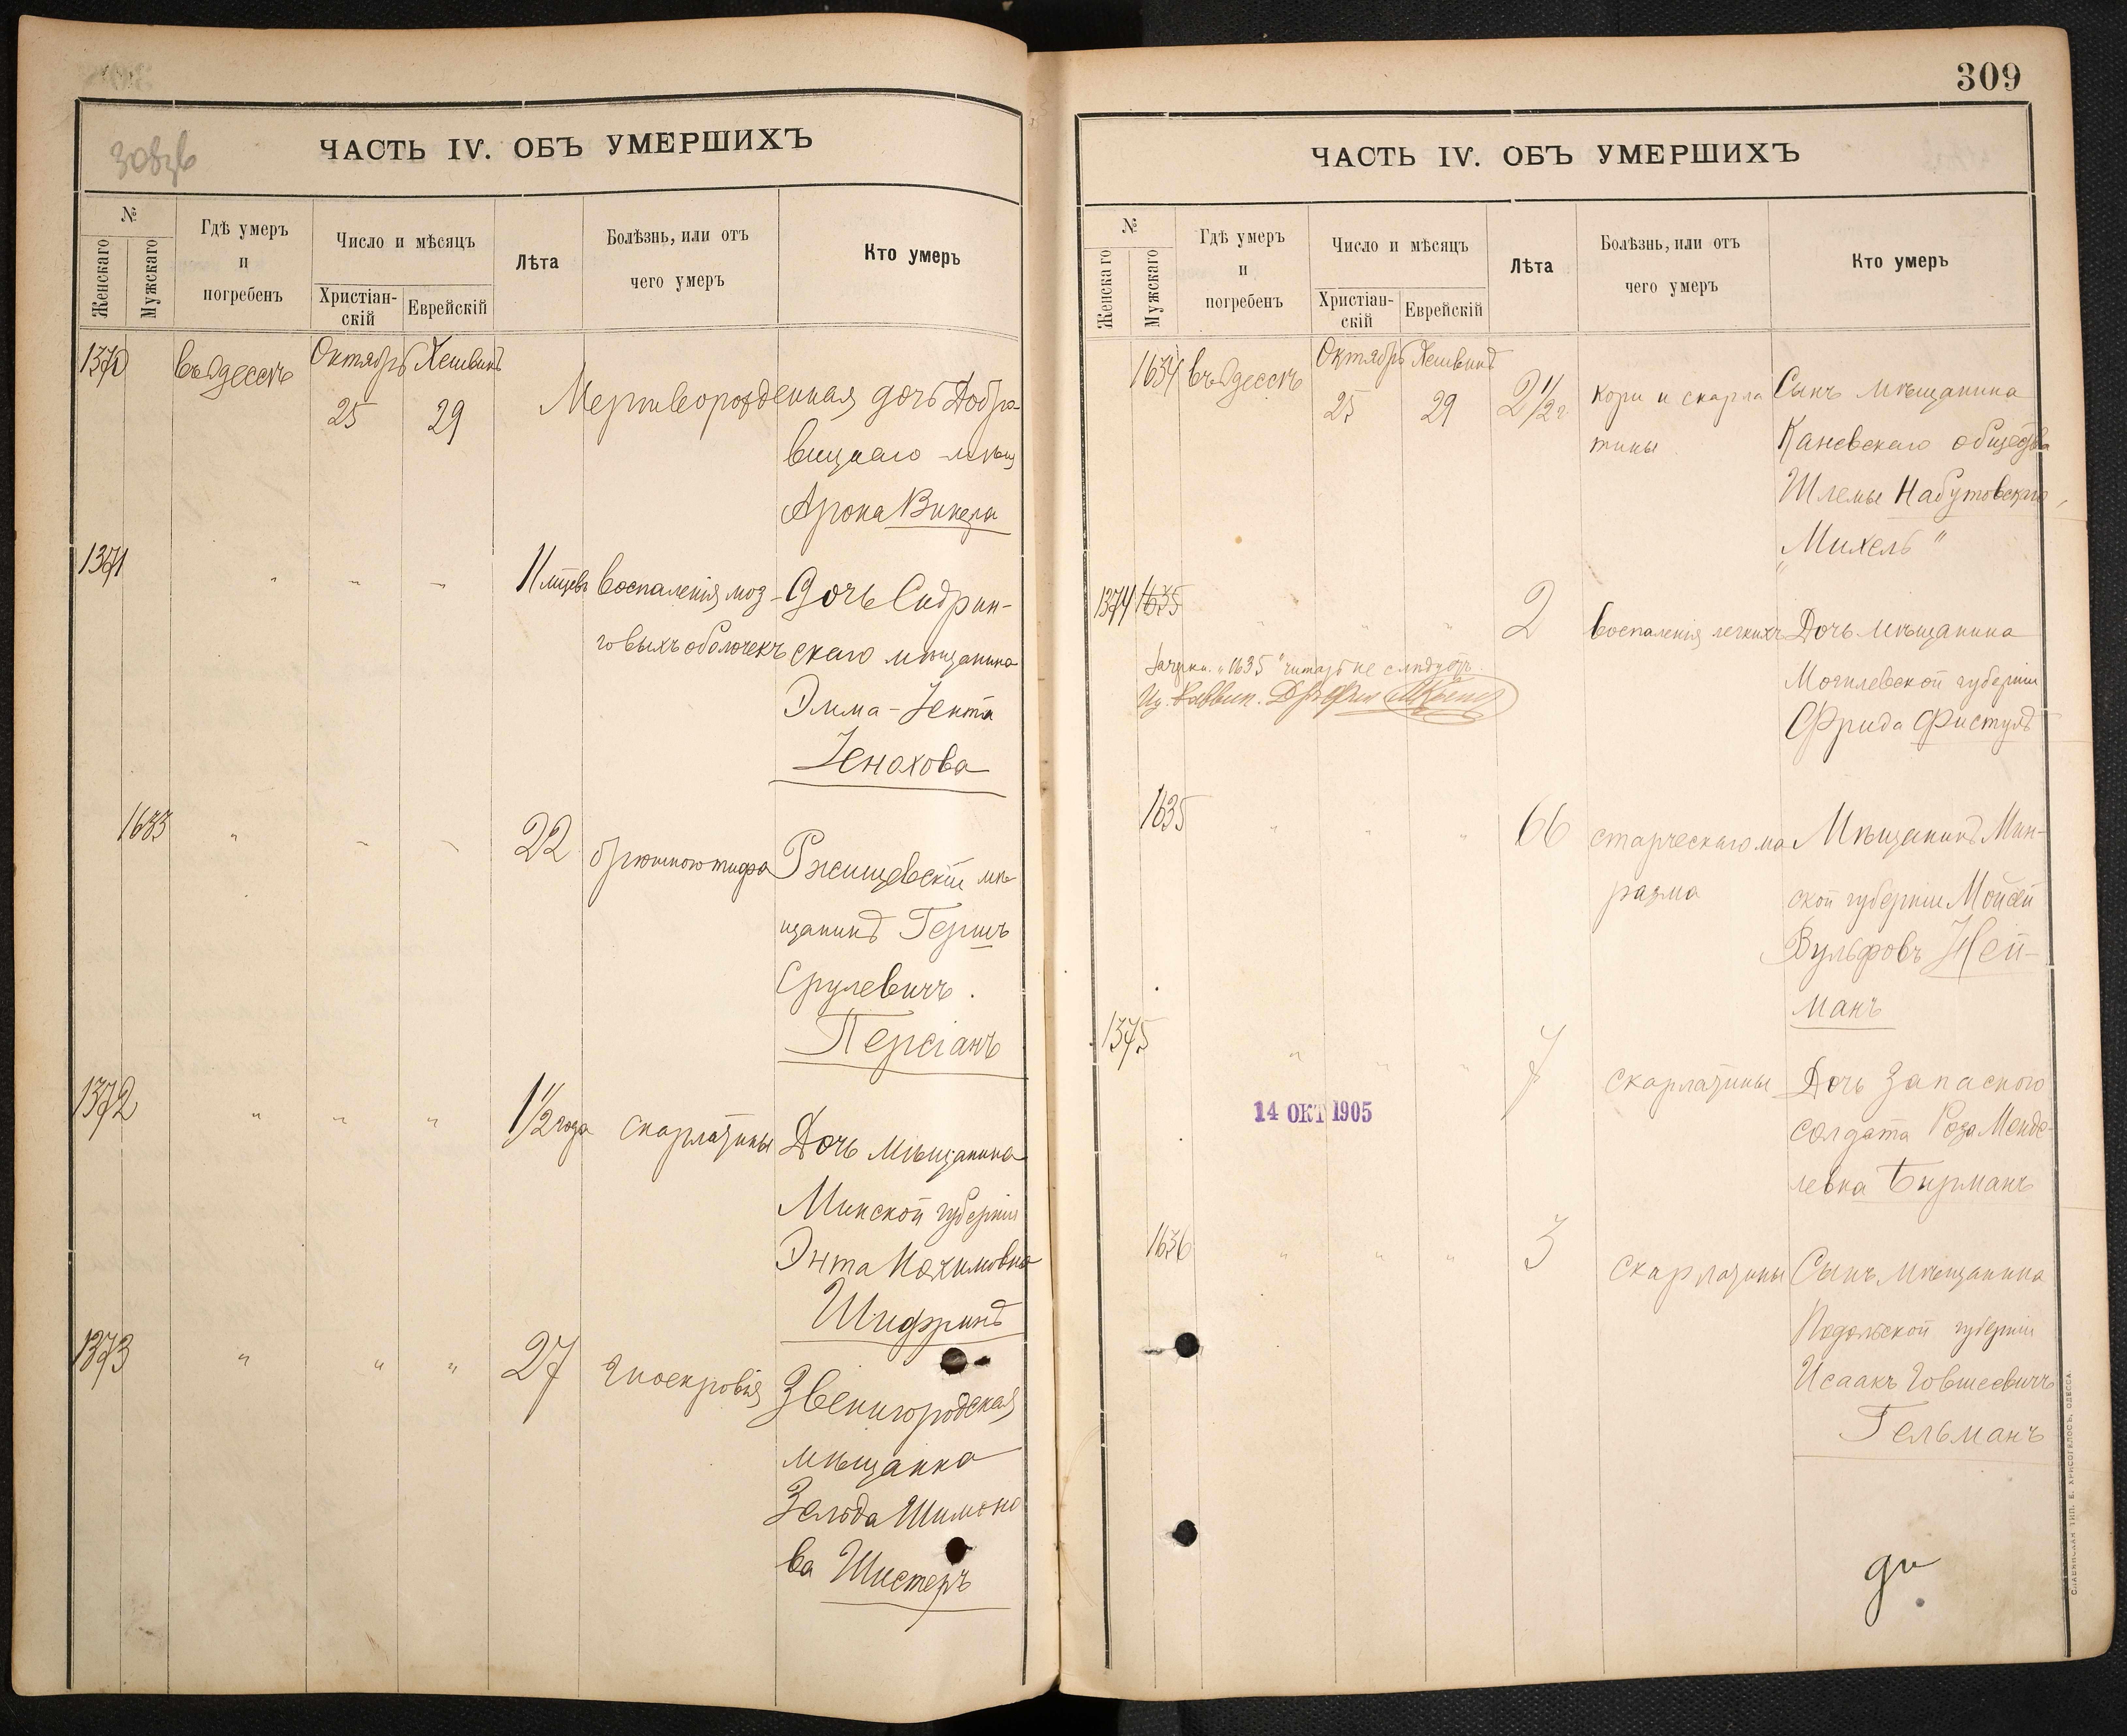 308зв
ЧАСТЬ IV. ОБЪ УМЕРШИХЪ
№
Женскаго
Мужскаго
Гдѣ умеръ
и
погребенъ
Число и мѣсяцъ
Христіан-
скій
Еврейскій
Лѣта
Болѣзнь, или отъ
чего умеръ
Кто умеръ
1370 въ Одессѣ Октябрь Хешвинъ
25 29 Мертворожденная дочь Добря-
вицкаго мѣщ
Арона Винера
1371 " " " 11 мцевъ воспаленія моз- Дочь Сидрин-
говыхъ оболочекъ скаго мѣщанина
Эмма-Гента
Генохова
1633 " " " 22 брюшного тифа Ржищевскій мѣ-
щанинъ Гершъ
Срулевичъ.
Персіанъ
1372 " " " 1 1/2 года скарлатины Дочь мѣщанина
Минской губерніи
Энта Нохимовна
Шифринъ
1373 " " " 27 гноекровія Звенигородская
мѣщанка
Зельда Шимоно
ва Шистеръ
309
ЧАСТЬ IV. ОБЪ УМЕРШИХЪ
№
Женскаго
Мужскаго
Гдѣ умеръ
и
погребенъ
Число и мѣсяцъ
Христіан-
скій
Еврейскій
Лѣта
Болѣзнь, или отъ
чего умеръ
Кто умеръ
1634 въ Одессѣ Октябрь Хешвинъ
25 29 2 1/2 г кори и скарла Сынъ мѣщанина
тины Каневскаго общества
Шлемы Набутовскаго,
"Михель"
1374 1635 " " " 2 воспаленія легкихъ Дочь мѣщанина
Зачеркн. "1635" читать не слѣдуетъ.
Могилевской губерніи
Фрида Фистулъ
1635 " " " 66 старческаго ма Мѣщанинъ Мин-
разма ской губерніи Мойсей
Вульфовъ Ней-
манъ
1375 " " " 7 скарлатины Дочь запасного
14 ОКТ 1905
солдата Роза Менде-
левна Бирманъ
1636 " " " 3 скарлатины Сынъ мѣщанина
Подольской губерніи
Исаакъ Говшеевичъ
Гельманъ
СЛАВЯНСКАЯ ТИП. Е. ХРИСОГЕЛОСЪ, ОДЕССА.